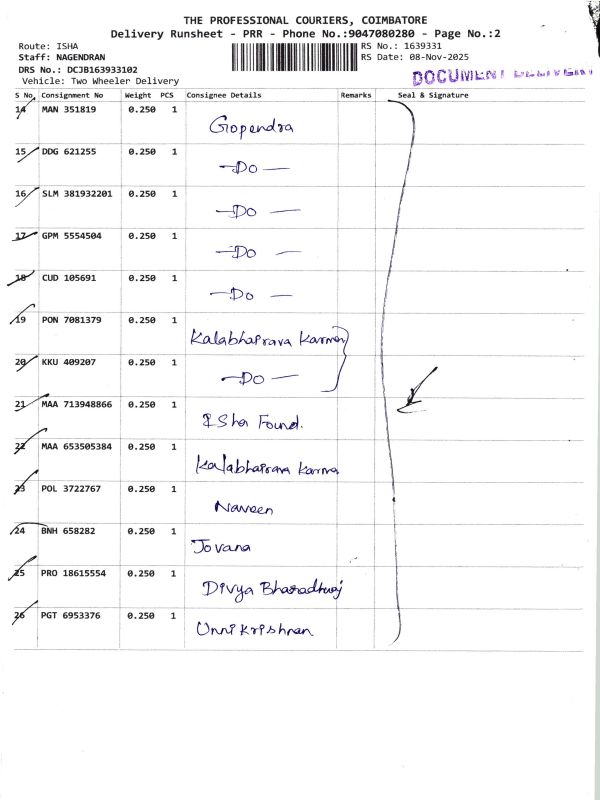 THE PROFESSIONAL COURIERS, COIMBATORE
Delivery Runsheet - PRR - Phone No.:9047080280 - Page No.:2
Route: ISHA RS No.: 1639331
Staff: NAGENDRAN RS Date: 08-Nov-2025
DRS No.: DCJB163933102 DOCUMENT DELIVERY
Vehicle: Two Wheeler Delivery
S No. Consignment No Weight PCS Consignee Details Remarks Seal & Signature
14 MAN 351819 0.250 1 Gopendra
15 DDG 621255 0.250 1 —Do—
16 SLM 381932201 0.250 1 —Do —
17 GPM 5554504 0.250 1 —Do —
18 CUD 105691 0.250 1 —Do —
19 PON 7081379 0.250 1 Kalabhairava Karma
20 KKU 409207 0.250 1 —Do —
21 MAA 713948866 0.250 1 Isha Found.
22 MAA 653505384 0.250 1 Kalabhairava Karma
23 POL 3722767 0.250 1 Naveen
24 BNH 658282 0.250 1 Jovana
25 PRO 18615554 0.250 1 Divya Bharadhwaj
26 PGT 6953376 0.250 1 Unnikrishnan